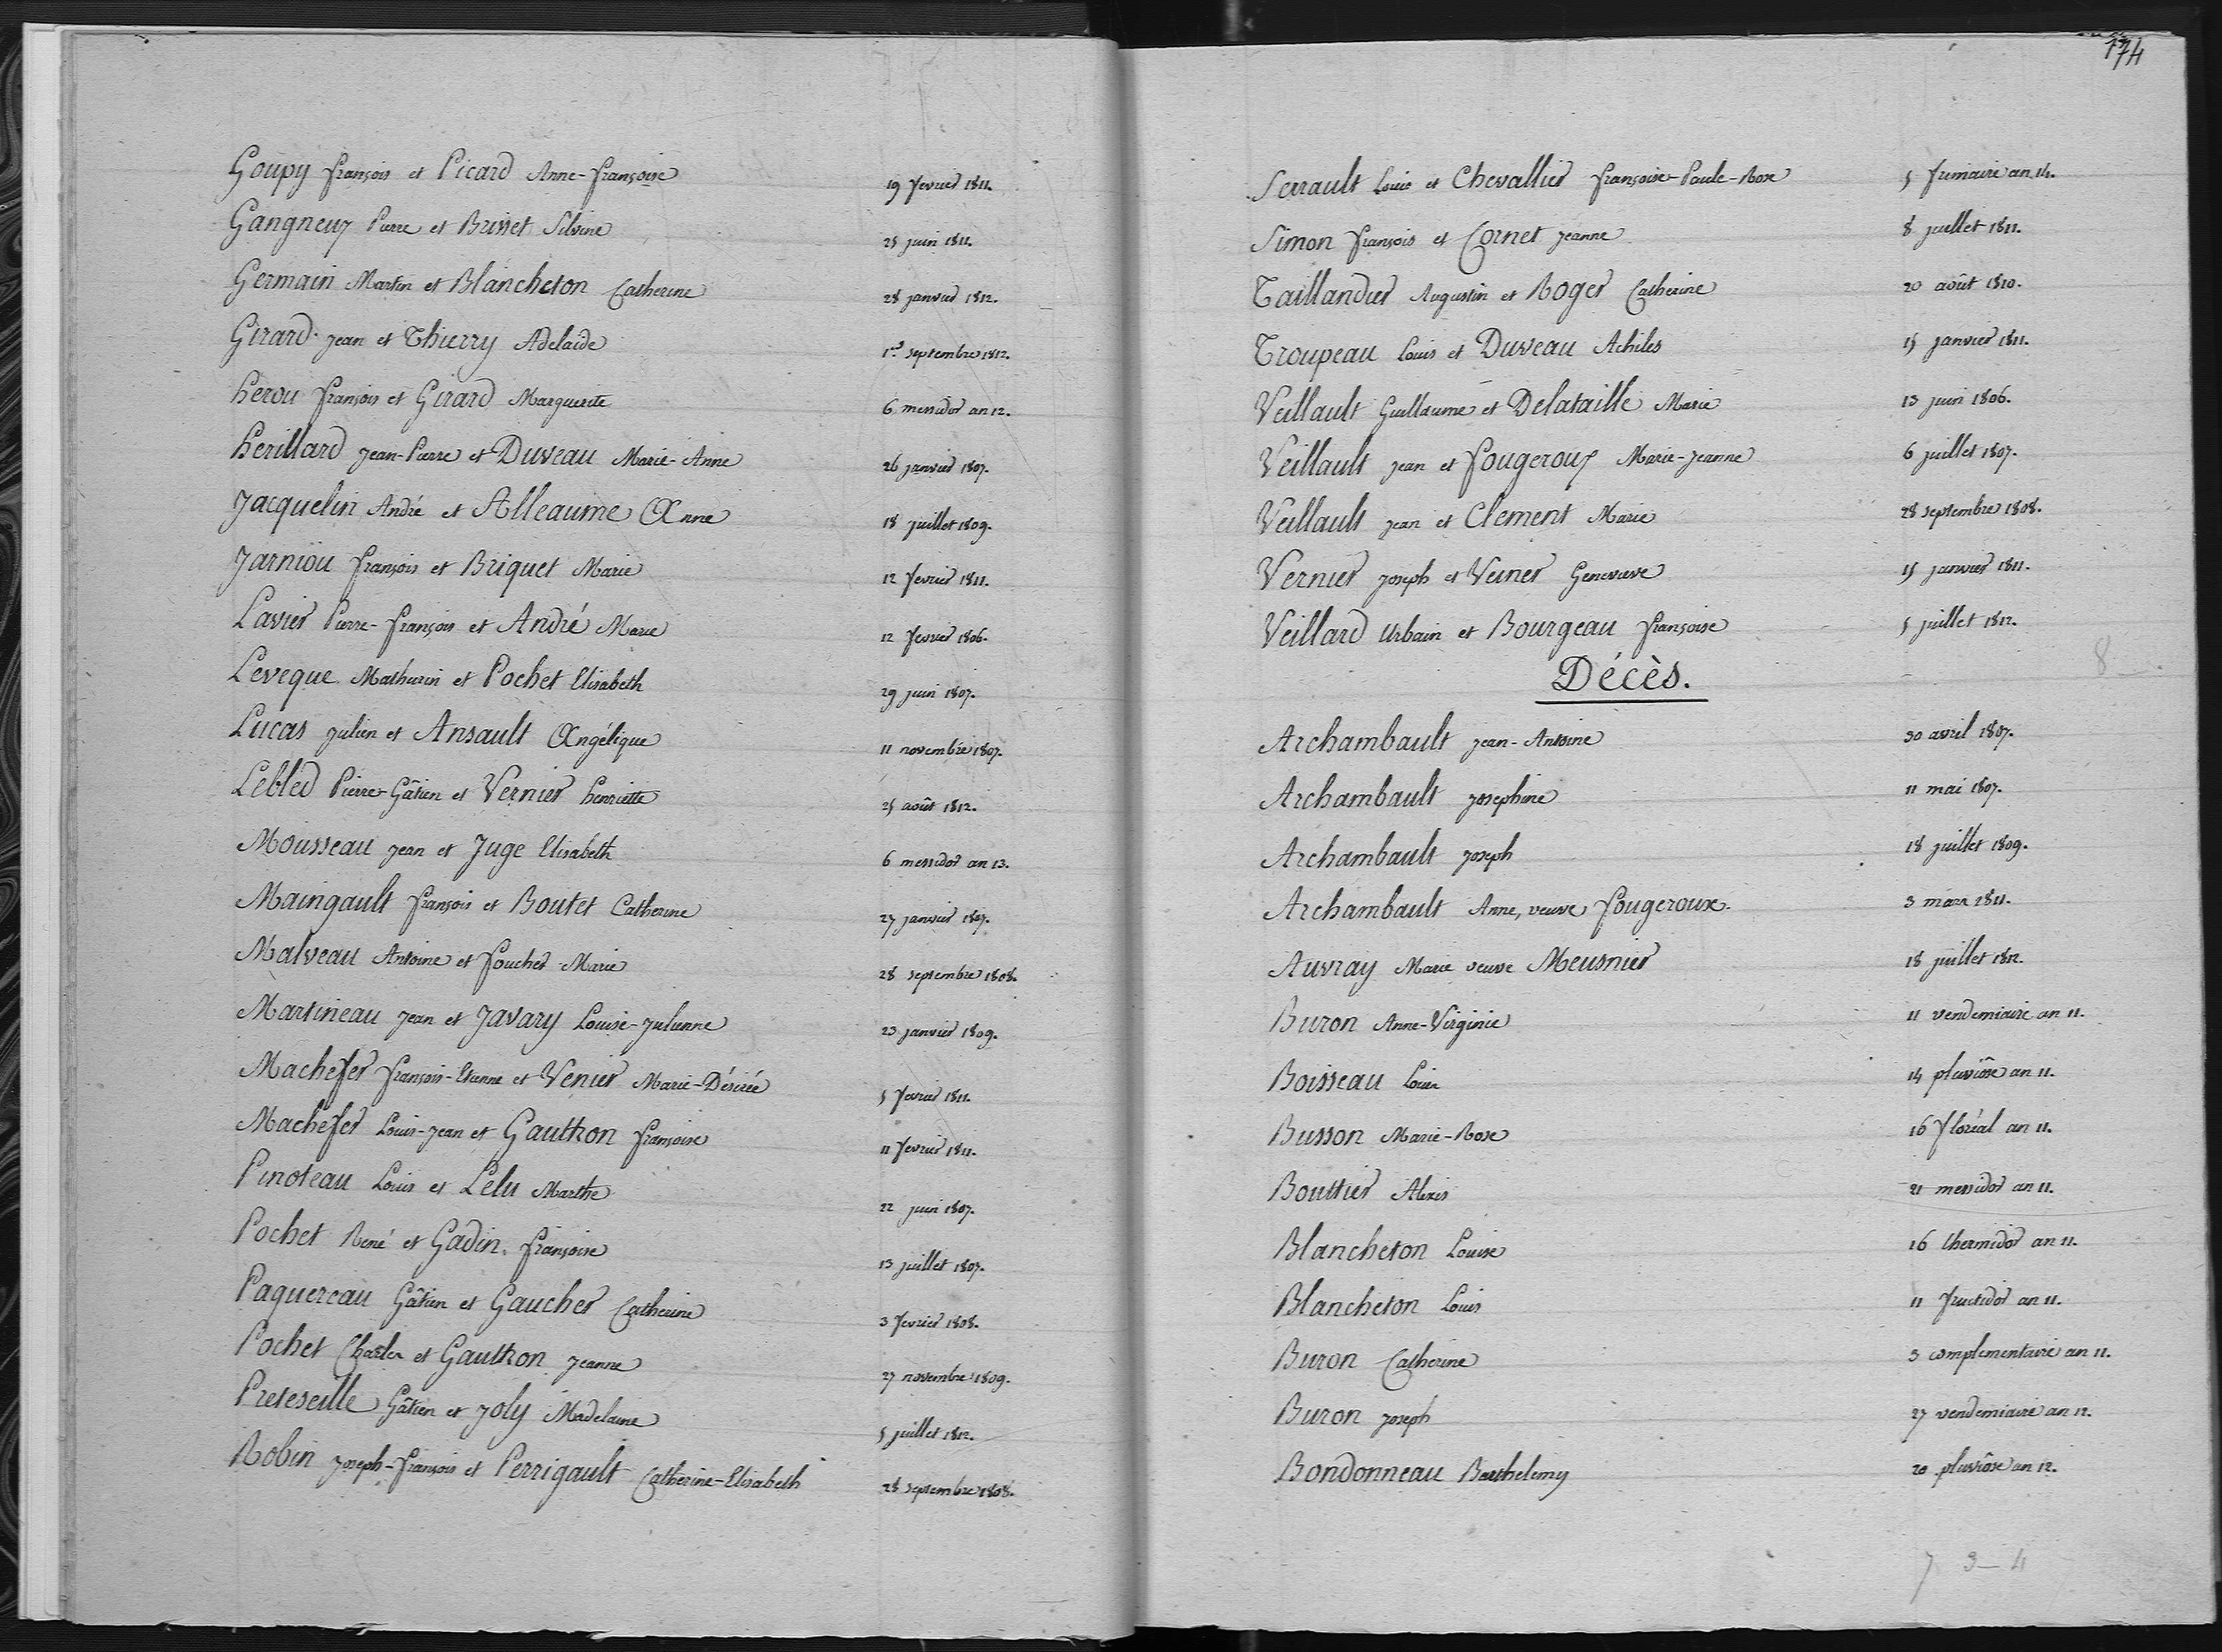 Goupy françois et Picard Anne-françoise 19 fevrier 1811.
Gangneux Pierre et Brisset Silvine 25 juin 1811.
Germain Martin et Blancheton Catherine 28 janvier 1812.
Girard jean et Thierry Adelaïde 1.er septembre 1812.
hervu françois et Girard Marguerite 6 messidor an 12.
herillard jean-Pierre et Duveau Marie-Anne 26 janvier 1807.
Jacquelin André et Alleaume Anne 18 juillet 1809.
Jarniou françois et Briquet Marie 12 fevrier 1811.
Lavier Pierre-françois et André Marie 12 fevrier 1806.
Leveque Mathurin et Pochet Elisabeth 29 juin 1807.
Lucas julien et Ansault Angélique 11 novembre 1807.
Lebled Pierre-Gâtien et Vernier henriette 25 août 1812.
Mousseau jean et Juge Elisabeth 6 messidor an 13.
Maingault françois et Boutet Catherine 27 janvier 1807.
Malveau Antoine et foucher Marie 28 septembre 1808.
Martineau jean et Javary Louise-julienne 23 janvier 1809.
Machefer françois-Etienne et Venier Marie-Désirée 5 fevrier 1811.
Machefer Louis-jean et Gauthron françoise 11 fevrier 1811.
Pinoteau Louis et Lelu Marthe 22 juin 1807.
Pochet René et Gadin françoise 13 juillet 1807.
Paquereau Gâtien et Gaucher Catherine 3 fevrier 1808.
Pochet Charles et Gauthron jeanne 27 novembre 1809.
Preteseille Gâtien et joly Madelaine 5 juillet 1812.
Robin joseph-françois et Perrigault Catherine-Elisabeth 28 septembre 1808.
174
Serrault Louis et Chevallier françoise-Paule-Rose 5 frimaire an 14.
Simon françois et Cornet jeanne 8 juillet 1811.
Taillandier Augustin et Roger Catherine 20 août 1810.
Troupeau Louis et Duveau Achiles 15 janvier 1811.
Veillault Guillaume et Delataille Marie 13 juin 1806.
Veillault jean et fougeroux Marie-jeanne 6 juillet 1807.
Veillault jean et Clement Marie 28 septembre 1808.
Vernier joseph et Veiner Genevieve 15 janvier 1811.
Veillard Urbain et Bourgeau françoise 5 juillet 1812.
8
Décès.
Archambault jean-Antoine 30 avril 1807.
Archambault josephine 11 mai 1807.
Archambault joseph 18 juillet 1809.
Archambault Anne, veuve fougeroux 3 mars 1811.
Auvray Marie veuve Meusnier 18 juillet 1812.
Buron Anne-Virginie 11 vendemiaire an 11.
Boisseau Louis 14 pluviôse an 11.
Busson Marie-Rose 16 floréal an 11.
Bouttier Alexis 21 messidor an 11.
Blancheton Louise 16 thermidor an 11.
Blancheton Louis 11 fructidor an 11.
Buron Catherine 3 complementaire an 11.
Buron joseph 27 vendemiaire an 12.
Bondonneau Barthelemy 20 pluviôse an 12.
7 3-4